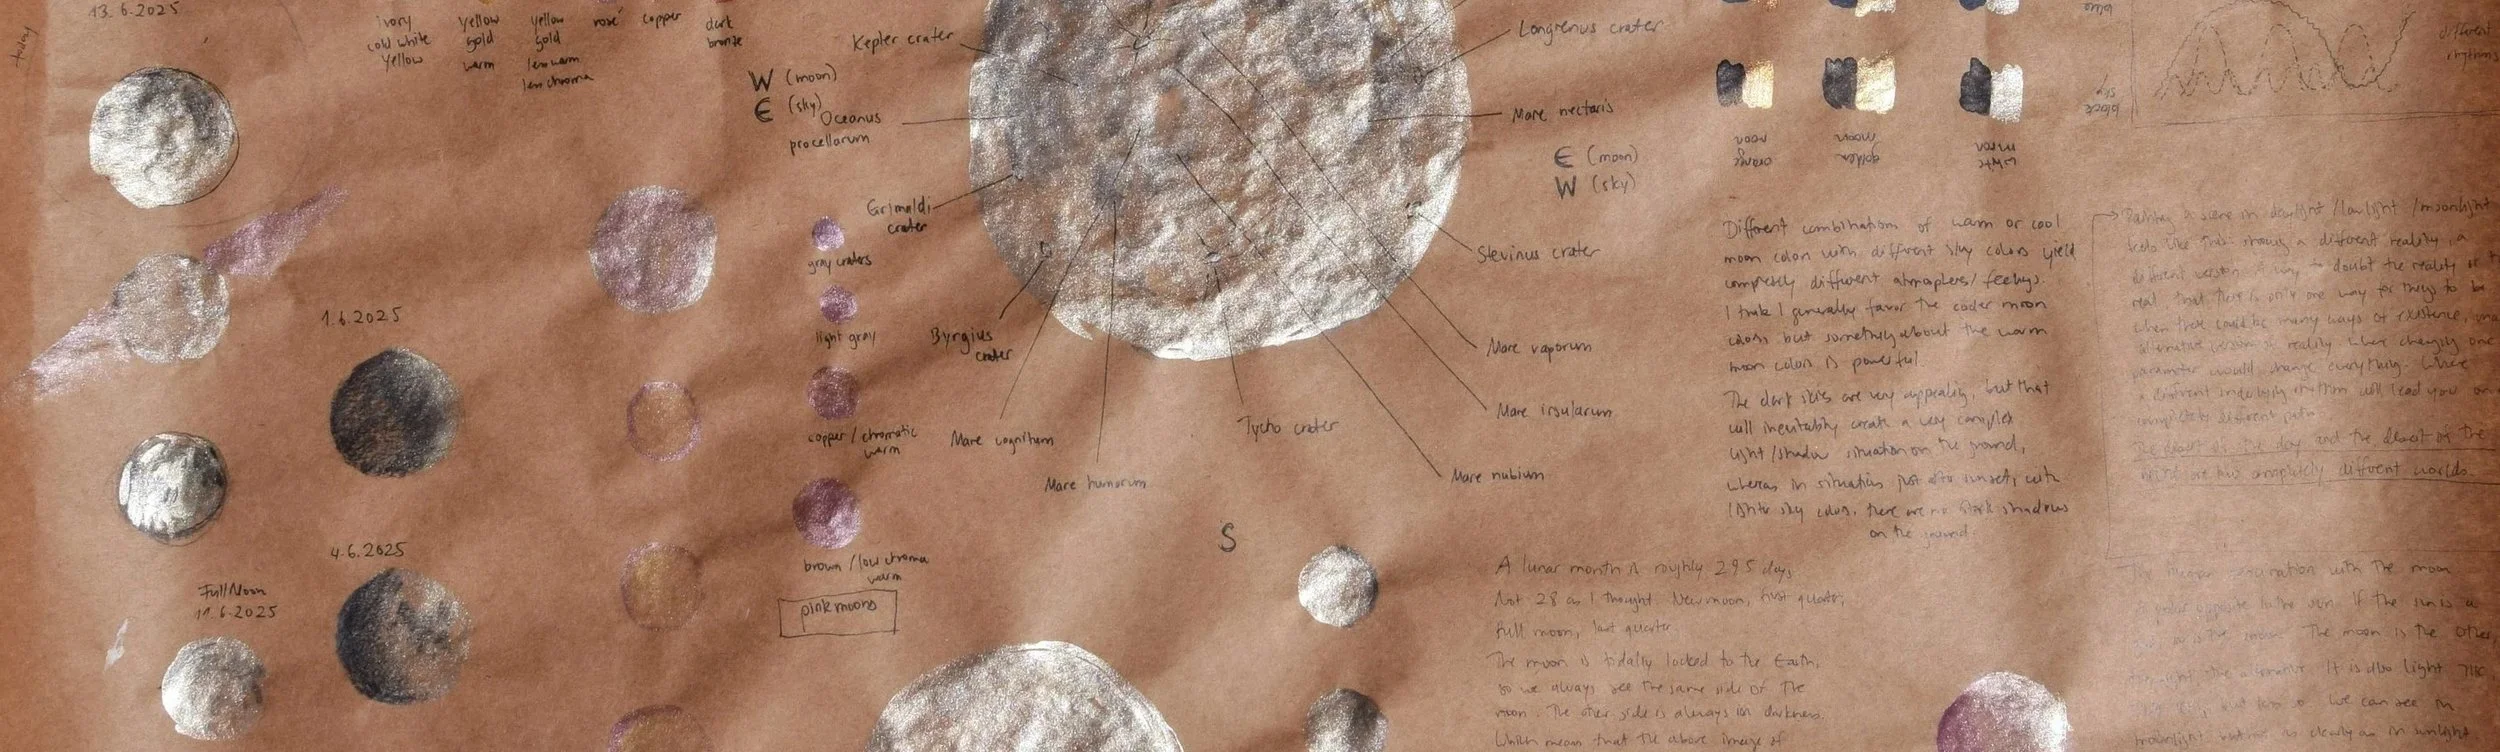 13.6.2025
today
ivory
cold white
yellow
yellow
gold
warm
yellow
gold
less warm
less chroma
rosé
copper
dark
bronze
Kepler crater
W (moon)
E (sky)
Oceanus
procellarum
Grimaldi
crater
Byrgius
crater
Mare cognitum
Mare humorum
Tycho crater
S
Langrenus crater
Mare nectaris
E (moon)
W (sky)
Stevinus crater
Mare vaporum
Mare insularum
Mare nubium
1.6.2025
4.6.2025
Full Moon
11.6.2025
gray craters
light gray
copper / chromatic
warm
brown / low chroma
warm
pink moons
blue
black
sky
orange
moon
golden
moon
white
moon
different
rhythms
Different combinations of warm or cool
moon colors with different sky colors yield
completely different atmospheres / feelings.
I think I generally favor the cooler moon
colors but something about the warm
moon colors is powerful.
The dark skies are very appealing, but that
will inevitably create a very complex
light / shadow situation on the ground,
whereas in situations just after sunset, with
lighter sky colors, there are no stark shadows
on the ground.
A lunar month is roughly 29.5 days,
Not 28 as I thought. New moon, first quarter,
Full moon, last quarter.
The moon is tidally locked to the Earth,
so we always see the same side of the
moon. The other side is always in darkness.
Which means that the above image of
Painting a scene in daylight / low light / moonlight
feels like showing a different reality, a
different version. A way to doubt the reality of the
real, that there is only one way for things to be
when there could be many ways of existence,
alternative version of reality where changing one
parameter would change everything. Where
a different underlying rhythm will lead you on a
completely different path.
The desert of the day and the desert of the
night are two completely different worlds.
The human fascination with the moon
A polar opposite to the sun. If the sun is a
is the moon. The moon is the other,
the alternative. It is also light
but less so. We can see in
moonlight but not as clearly as in sunlight